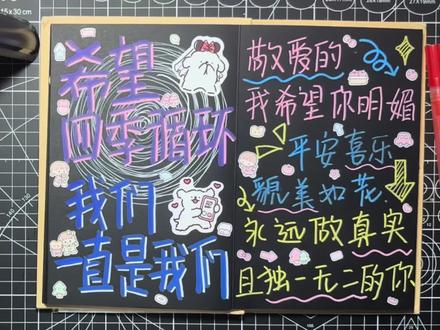 希望
四季循环
我们
一直是我们
敬爱的
我希望你明媚
平安喜乐
貌美如花
永远做真实
且独一无二的你